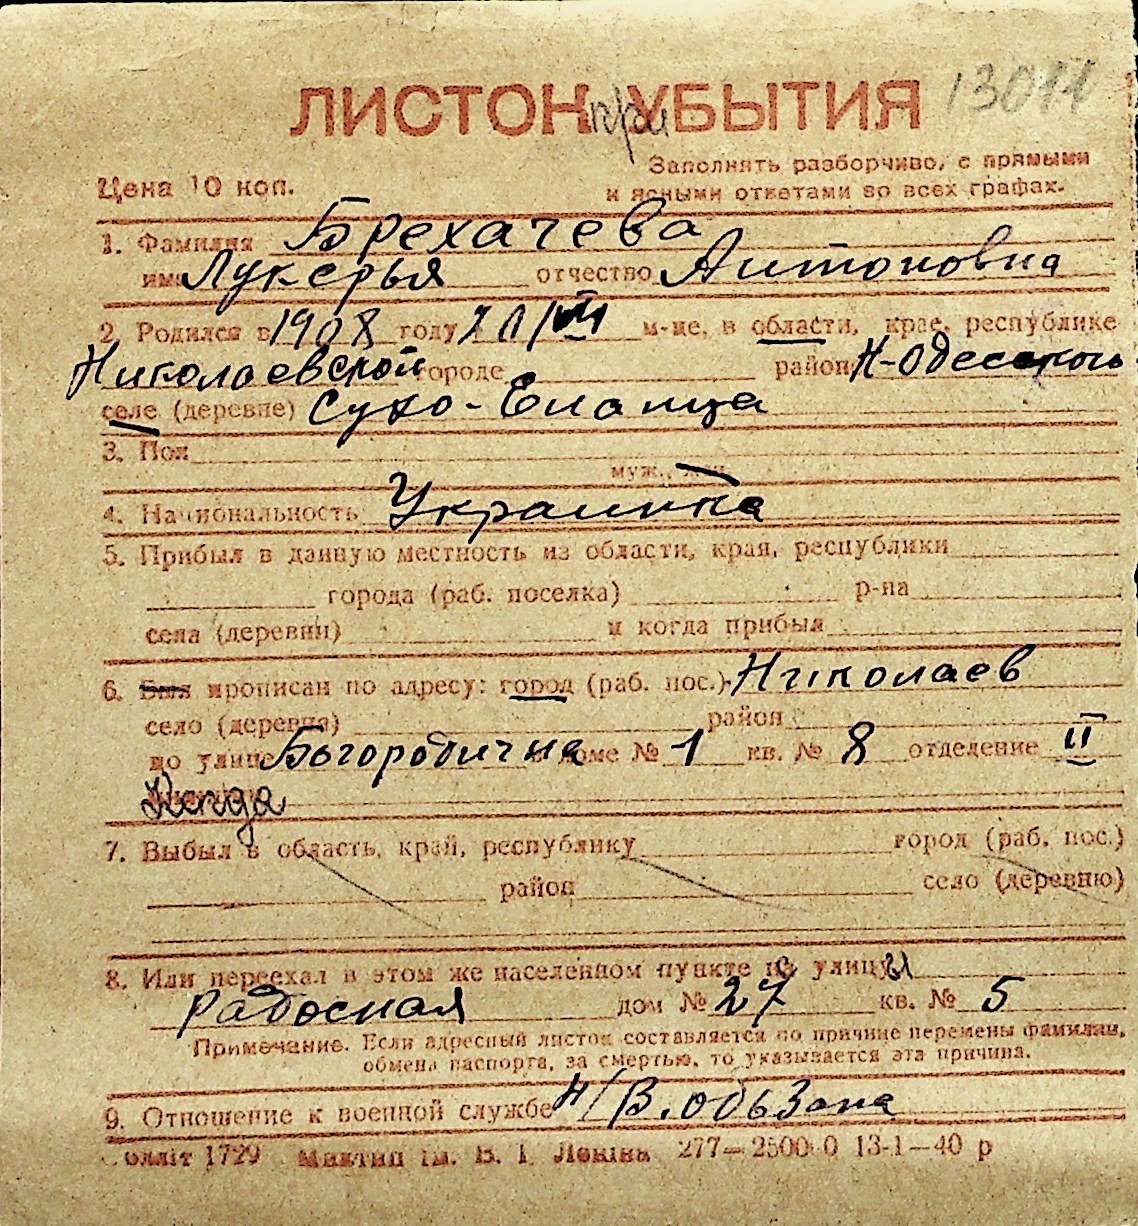 13011
ЛИСТОК при УБЫТИЯ
Заполнять разборчиво, с прямыми
Цена 10 коп. и ясными ответами во всех графах.
1. Фамилия Брехачева
имя Лукерья отчество Антоновна
2. Родился в 1908 году 20/VII м-це, в области, крае, республике
Николаевской городе район Н-Одесского
селе (деревне) Сухо-Еланца
3. Пол
муж., жен.
4. Национальность Украинка
5. Прибыл в данную местность из области, края, республики
города (раб. поселка) р-на
села (деревни) и когда прибыл
6. Был прописан по адресу: город (раб. пос.) Николаев
село (деревня) район
по улице Богородична в доме № 1 кв. № 8 отделение II
7. Выбыл в область, край, республику город (раб. пос.)
район село (деревню)
8. Или переехал в этом же населенном пункте с улицы
Радосная дом № 27 кв. № 5
Примечание. Если адресный листок составляется по причине перемены фамилии,
обмена паспорта, за смертью, то указывается эта причина.
9. Отношение к военной службе н/В.обьзана
1729 ім. В. І. Леніна 277—2500 0 13-1—40 р